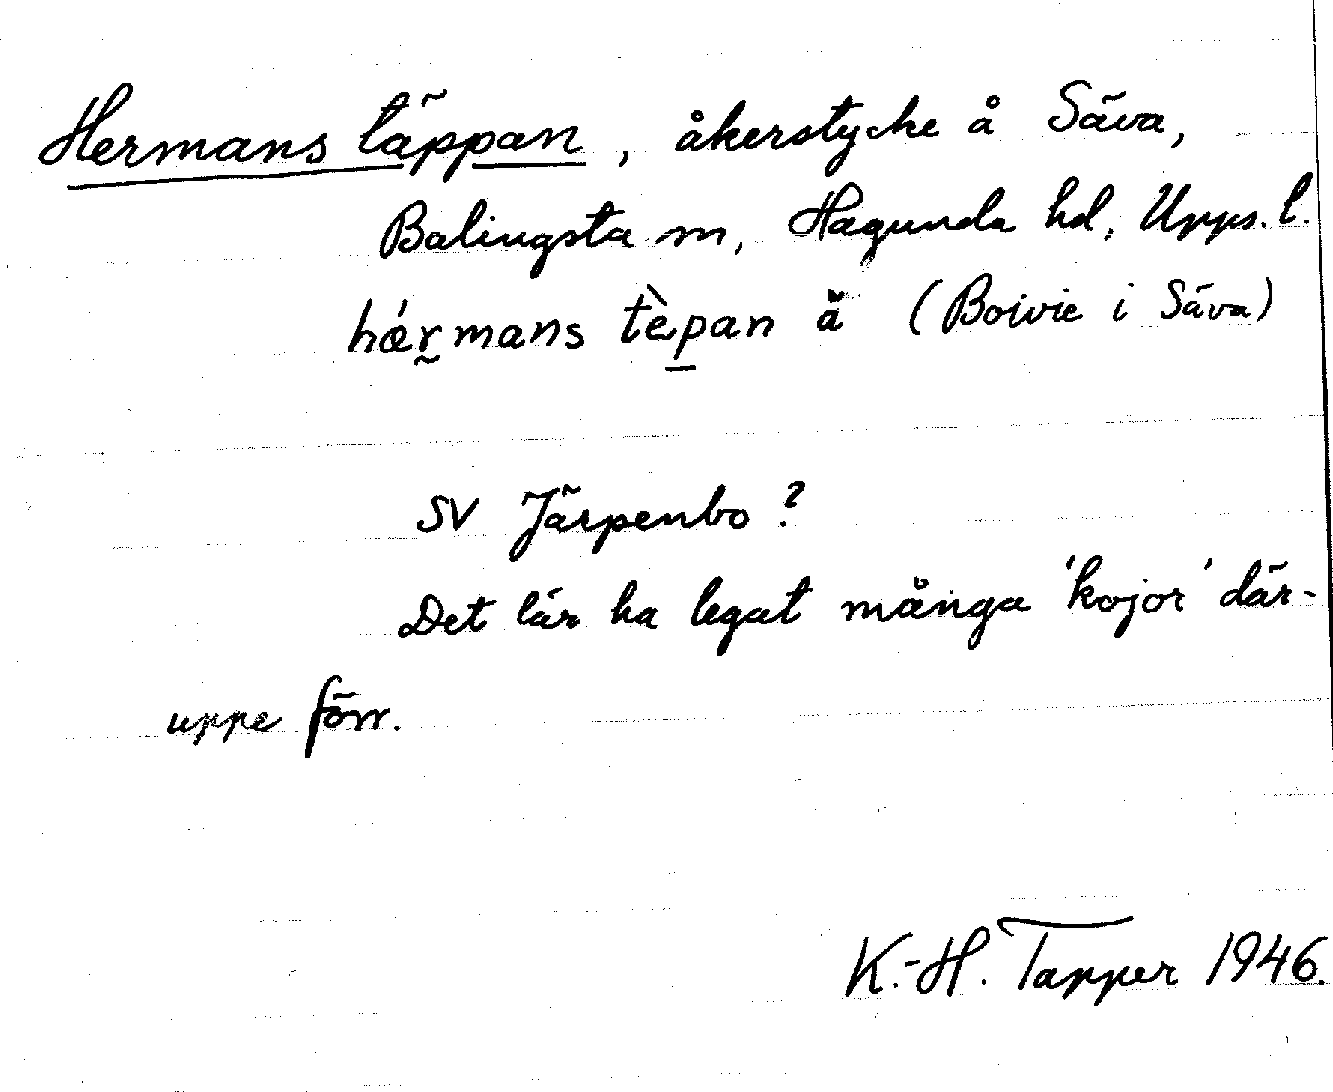 Hermans täppan, åkerstycke å Säva,
Balingsta sn, Hagunda hd, Upps. l.
hǽr̰mans tèp̱an ǟ (Boivie i Säva)
SV Järpenbo?
Det lär ha legat många 'kojor' där-
uppe förr.
K.-H. Tapper 1946.